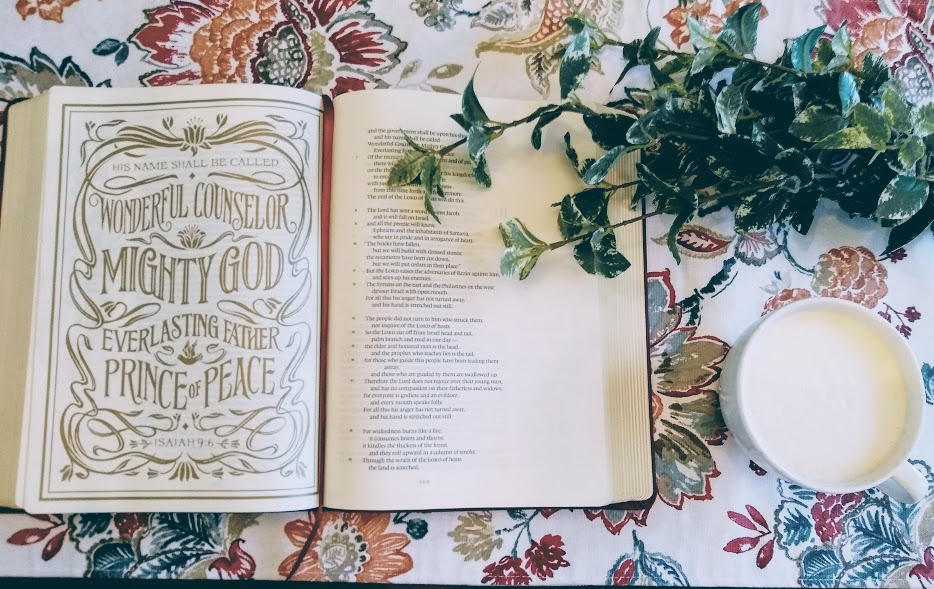 HIS NAME SHALL BE CALLED
WONDERFUL COUNSELOR
MIGHTY GOD
EVERLASTING FATHER
PRINCE OF PEACE
ISAIAH 9:6
and the government shall be upon his
and his name shall be called
Wonderful Mighty
Everlasting
Of the
there
on the his kingdom
to
with
from this time forth
The zeal of the LORD of will do this.
The Lord has sent a word against Jacob,
and it will fall on Israel;
and all the people will know,
Ephraim and the inhabitants of Samaria,
who say in pride and in arrogance of heart:
"The bricks have fallen,
but we will build with dressed stones;
the sycamores have been cut down,
but we will put cedars in their place."
But the LORD raises the adversaries of Rezin against him,
and stirs up his enemies.
The Syrians on the east and the Philistines on the west
devour Israel with open mouth.
For all this his anger has not turned away,
and his hand is stretched out still.
The people did not turn to him who struck them,
nor inquire of the LORD of hosts.
So the LORD cut off from Israel head and tail,
palm branch and reed in one day—
the elder and honored man is the head,
and the prophet who teaches lies is the tail;
for those who guide this people have been leading them
astray,
and those who are guided by them are swallowed up.
Therefore the Lord does not rejoice over their young men,
and has no compassion on their fatherless and widows;
for everyone is godless and an evildoer,
and every mouth speaks folly.
For all this his anger has not turned away,
and his hand is stretched out still.
For wickedness burns like a fire;
it consumes briers and thorns;
it kindles the thickets of the forest,
and they roll upward in a column of smoke.
Through the wrath of the LORD of hosts
the land is scorched,